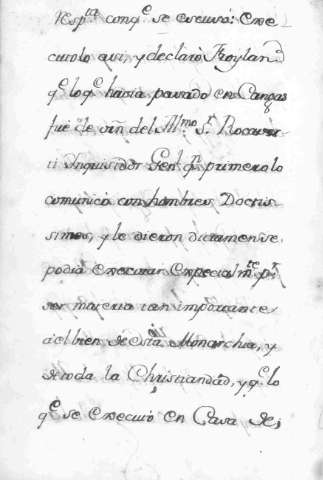 Resp.ta con q.e se escusó: Exe
cutolo asi, y declaró Froylan
q.e lo q.e havia pasado en Cangas
fue de orñ del Yll.mo S.r Rocaver
ti Inquisidor Gen.l q.n primero lo
comunicó con hombres Doctis
simos, y le dieron dictamen se
podia executar especialm.te p.r
ser materia tan importante
á el bien de esta Monarchia, y
de toda la Christiandad, y q.e lo
q.e se executó en Casa de,